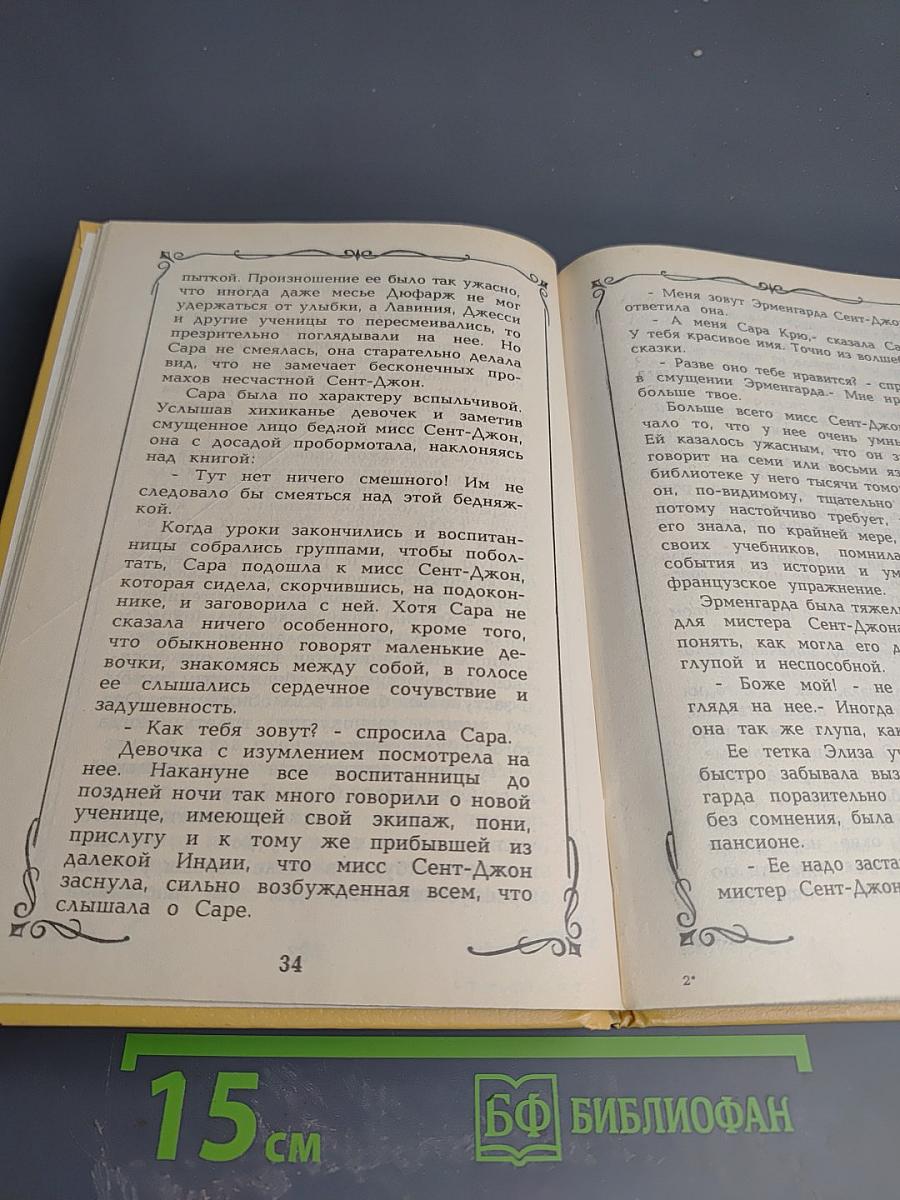 пыткой. Произношение ее было так ужасно,
что иногда даже месье Дюфарж не мог
удержаться от улыбки, а Лавиния, Джесси
и другие ученицы то пересмеивались, то
презрительно поглядывали на нее. Но
Сара не смеялась, она старательно делала
вид, что не замечает бесконечных про-
махов несчастной Сент-Джон.
Сара была по характеру вспыльчивой.
Услышав хихиканье девочек и заметив
смущенное лицо бедной мисс Сент-Джон,
она с досадой пробормотала, наклоняясь
над книгой:
- Тут нет ничего смешного! Им не
следовало бы смеяться над этой бедняж-
кой.
Когда уроки закончились и воспитан-
ницы собрались группами, чтобы побол-
тать, Сара подошла к мисс Сент-Джон,
которая сидела, скорчившись, на подокон-
нике, и заговорила с ней. Хотя Сара не
сказала ничего особенного, кроме того,
что обыкновенно говорят маленькие де-
вочки, знакомясь между собой, в голосе
ее слышались сердечное сочувствие и
задушевность.
- Как тебя зовут? - спросила Сара.
Девочка с изумлением посмотрела на
нее. Накануне все воспитанницы до
поздней ночи так много говорили о новой
ученице, имеющей свой экипаж, пони,
прислугу и к тому же прибывшей из
далекой Индии, что мисс Сент-Джон
заснула, сильно возбужденная всем, что
слышала о Саре.
34
- Меня зовут Эрменгарда Сент-Джо
ответила она.
- А меня Сара Крю,- сказала Са
У тебя красивое имя. Точно из волше
сказки.
- Разве оно тебе нравится? - спр
в смущении Эрменгарда.- Мне нр
больше твое.
Больше всего мисс Сент-Джо
чало то, что у нее очень умны
Ей казалось ужасным, что он з
говорит на семи или восьми яз
библиотеке у него тысячи томо
он, по-видимому, тщательно
потому настойчиво требует,
его знала, по крайней мере,
своих учебников, помнила
события из истории и ум
французское упражнение.
Эрменгарда была тяжел
для мистера Сент-Джона
понять, как могла его д
глупой и неспособной.
- Боже мой! - не
глядя на нее.- Иногда
она так же глупа, как
Ее тетка Элиза уч
быстро забывала выз
гарда поразительно
без сомнения, была
пансионе.
- Ее надо заста
мистер Сент-Джон
2*
15 см
БФ БИБЛИОФАН